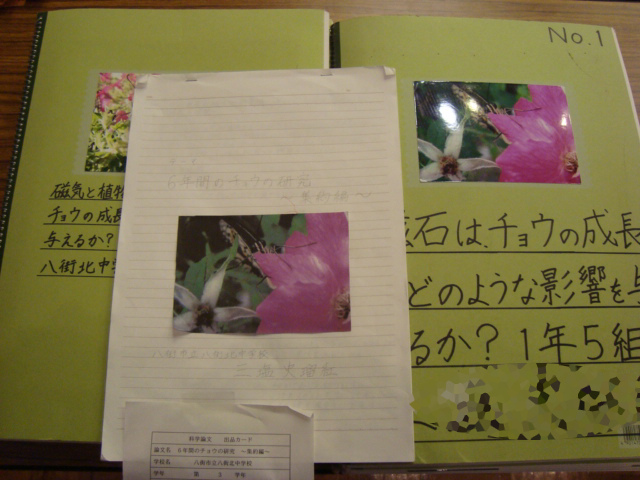 磁気と植物
チョウの成長
与えるか?
八街北中学
6年間のチョウの研究
～集約編～
八街市立八街北中学校
科学論文 出品カード
論文名 6年間のチョウの研究 ～集約編～
学校名 八街市立八街北中学校
学年 第 3 学年
No.1
石は、チョウの成長
どのような影響を与
るか? 1年5組